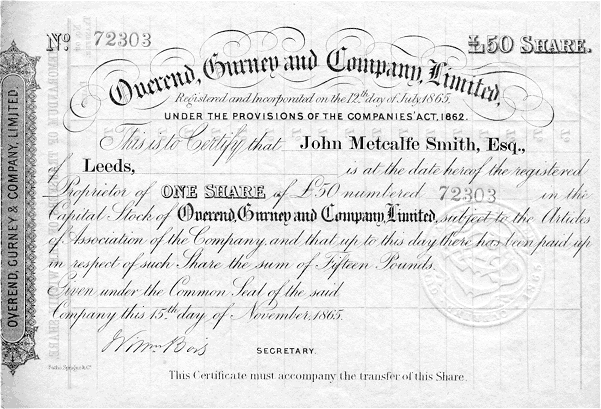 No. 72303
£50 SHARE.
Overend, Gurney and Company, Limited,
Registered and Incorporated on the 12th day of July 1865.
UNDER THE PROVISIONS OF THE COMPANIES' ACT, 1862.
This is to Certify that John Metcalfe Smith, Esq.,
of Leeds, is at the date hereof the registered
Proprietor of ONE SHARE of £50 numbered 72303 in the
Capital Stock of Overend, Gurney and Company, Limited, subject to the Articles
of Association of the Company, and that up to this day there has been paid up
in respect of such Share the sum of Fifteen Pounds.
Given under the Common Seal of the said
Company this 15th day of November, 1865.
SECRETARY.
This Certificate must accompany the transfer of this Share.
OVEREND, GURNEY & COMPANY, LIMITED